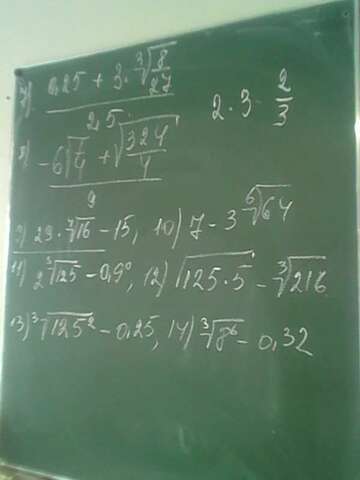 7) 0,25 + 3 · ∛(8/27)
25
2 · 3 · 2/3
8) -6√(1/4) + √(324/4)
9
9) 29 · ∜16 - 15, 10) 7 - 3 ⁶√64
11) 2 ∛125 - 0,9⁰, 12) √(125 · 5) - ∛216
13) ∛(125²) - 0,25, 14) ∛(8⁶) - 0,32